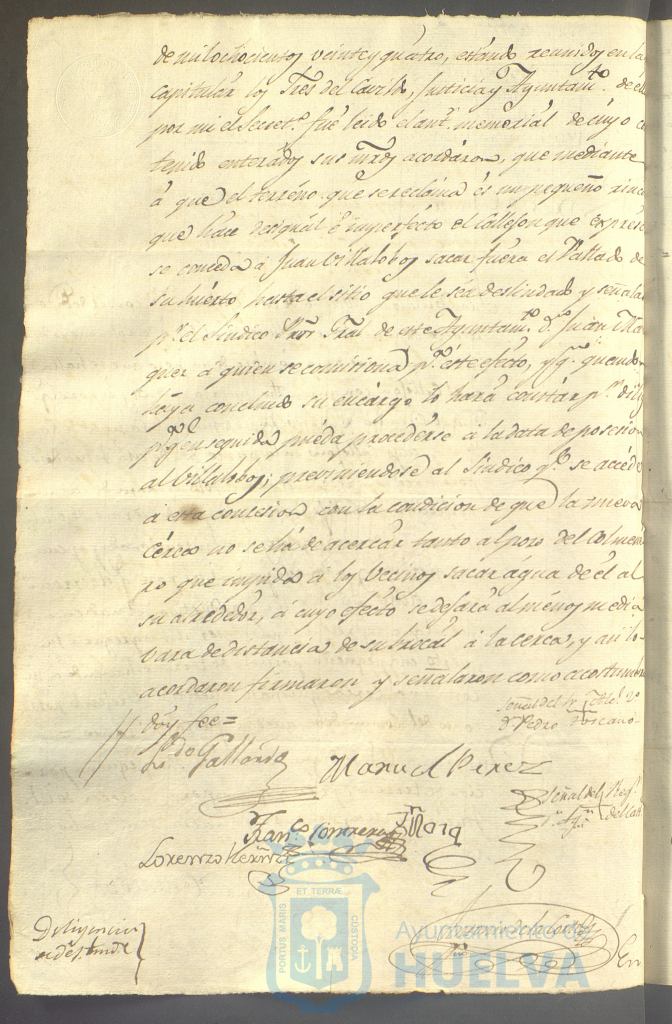 de mil ochocientos veinte y quatro, estando reunidos en la
capitular los Sres del Cavildo, Justicia y Ayuntamto. de el
por mi el Secreto. fue leido el ant. memorial de cuyo co
tenido enterados sus mrds acordaron, que mediante
á que el terreno que se reclama és un pequeño rinco
que hace desigual é imperfecto el Callejon que expresa
se conceda á Juan Villalobos sacar fuera el Vallado de
su huerto hasta el sitio que le sea deslindado y señala
pr. el Sindico Gral de este Ayuntamto. Dn. Juan Ma
quer á quien se comisiona pa. este efecto, y qe. quando
haya concluido su encargo lo hará constar pr. dilig
pa. qe en seguida pueda procederse á la data de posesion
al Villalobos; previniendose al Sindico qe. se accede
á esta concesion con la condicion de que la nueva
cérca no se há de acercar tanto al pozo del Colmena
ro que impida á los Vecinos sacar agua de él al
su alrededor, á cuyo efecto se dejará al ménos media
vara de distancia de su brocal á la cerca, y asi lo
acordaron firmaron y señalaron como acostumbra
doy fee=
Señal del Sr. Alcde. 2o
Dn Pedro Toscano
Ldo Gallardo
Manuel Perez
Señal del Regr.
Franco. Contreras
Lorenzo Hernz
Diligencia
de deslinde
En
PORTUS MARIS ET TERRÆ CUSTODIA
Ayuntamiento de
HUELVA